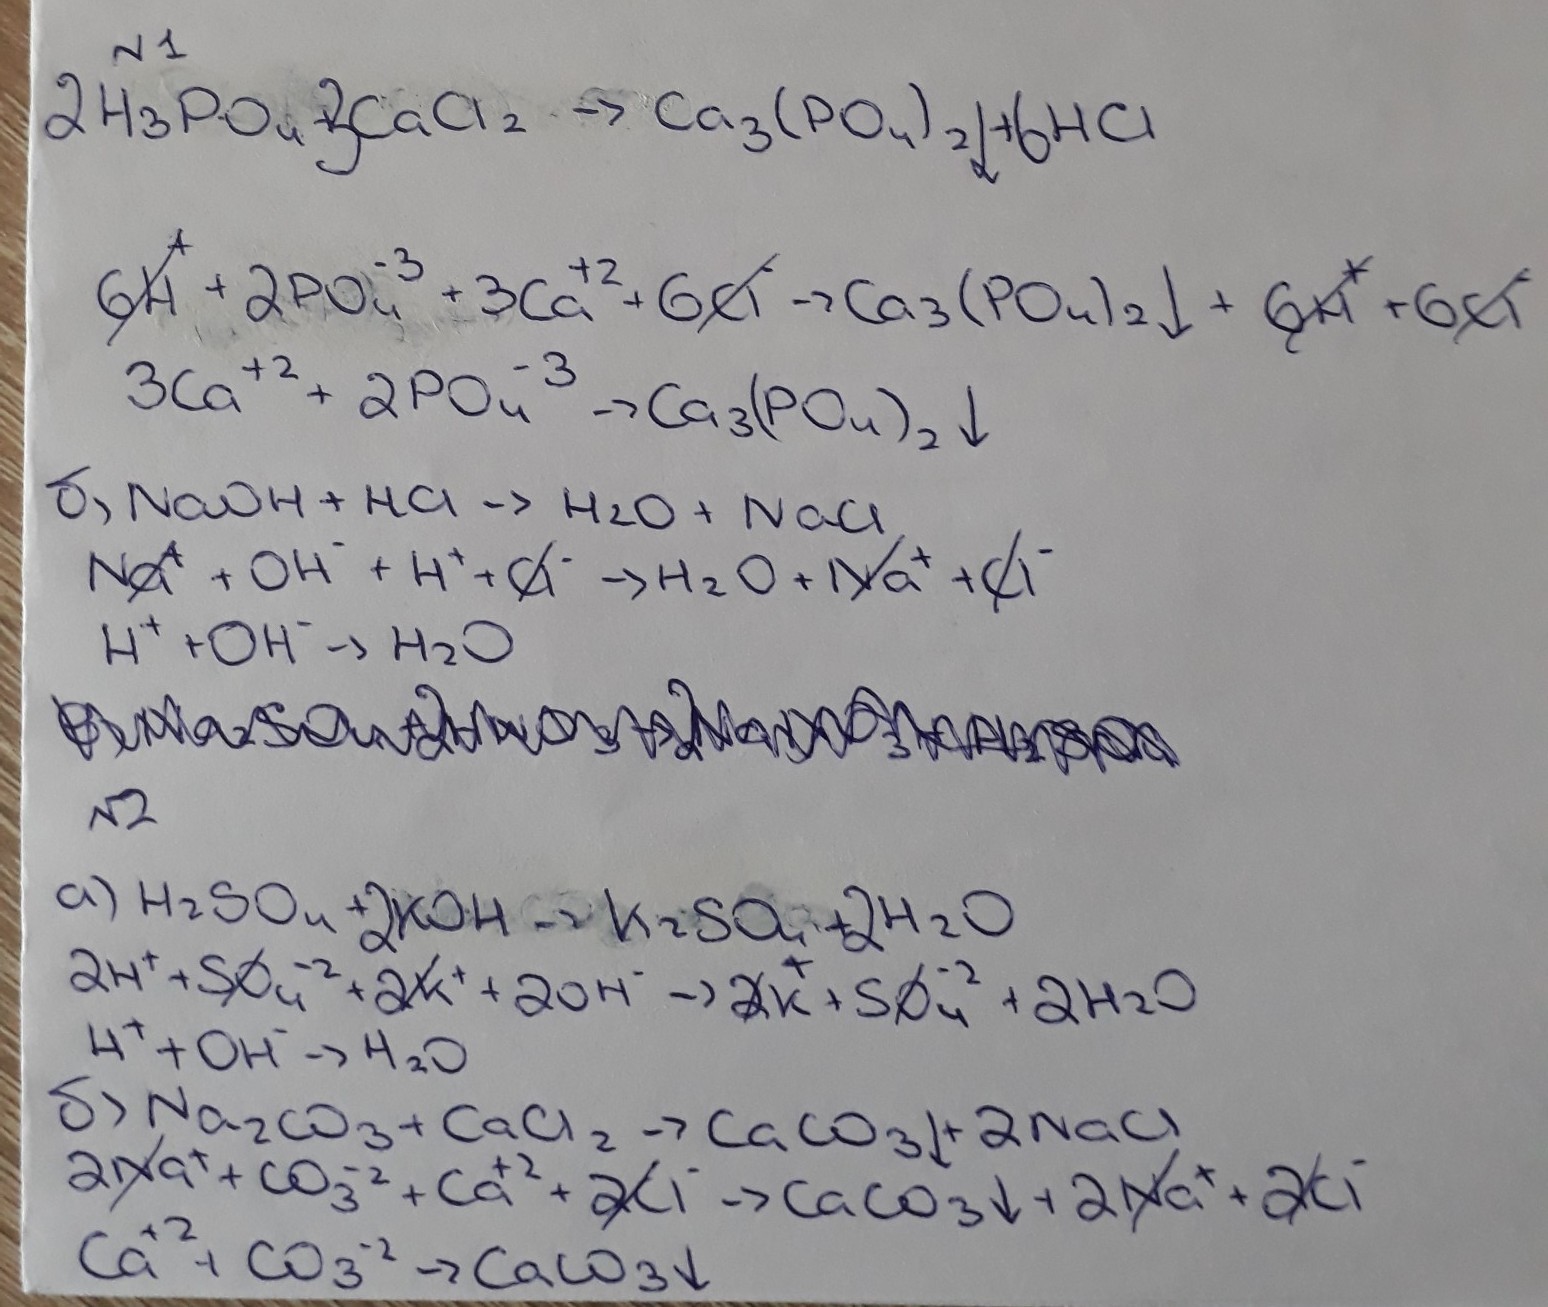 N1
2H₃PO₄+3CaCl₂ → Ca₃(PO₄)₂↓+6HCl
6H⁺ + 2PO₄⁻³ + 3Ca⁺² + 6Cl⁻ → Ca₃(PO₄)₂↓ + 6H⁺ + 6Cl⁻
3Ca⁺² + 2PO₄⁻³ → Ca₃(PO₄)₂↓
б) NaOH + HCl → H₂O + NaCl
Na⁺ + OH⁻ + H⁺ + Cl⁻ → H₂O + Na⁺ + Cl⁻
H⁺ + OH⁻ → H₂O
N2
а) H₂SO₄ + 2KOH → K₂SO₄ + 2H₂O
2H⁺ + SO₄⁻² + 2K⁺ + 2OH⁻ → 2K⁺ + SO₄⁻² + 2H₂O
H⁺ + OH⁻ → H₂O
б) Na₂CO₃ + CaCl₂ → CaCO₃↓ + 2NaCl
2Na⁺ + CO₃⁻² + Ca⁺² + 2Cl⁻ → CaCO₃↓ + 2Na⁺ + 2Cl⁻
Ca⁺² + CO₃⁻² → CaCO₃↓